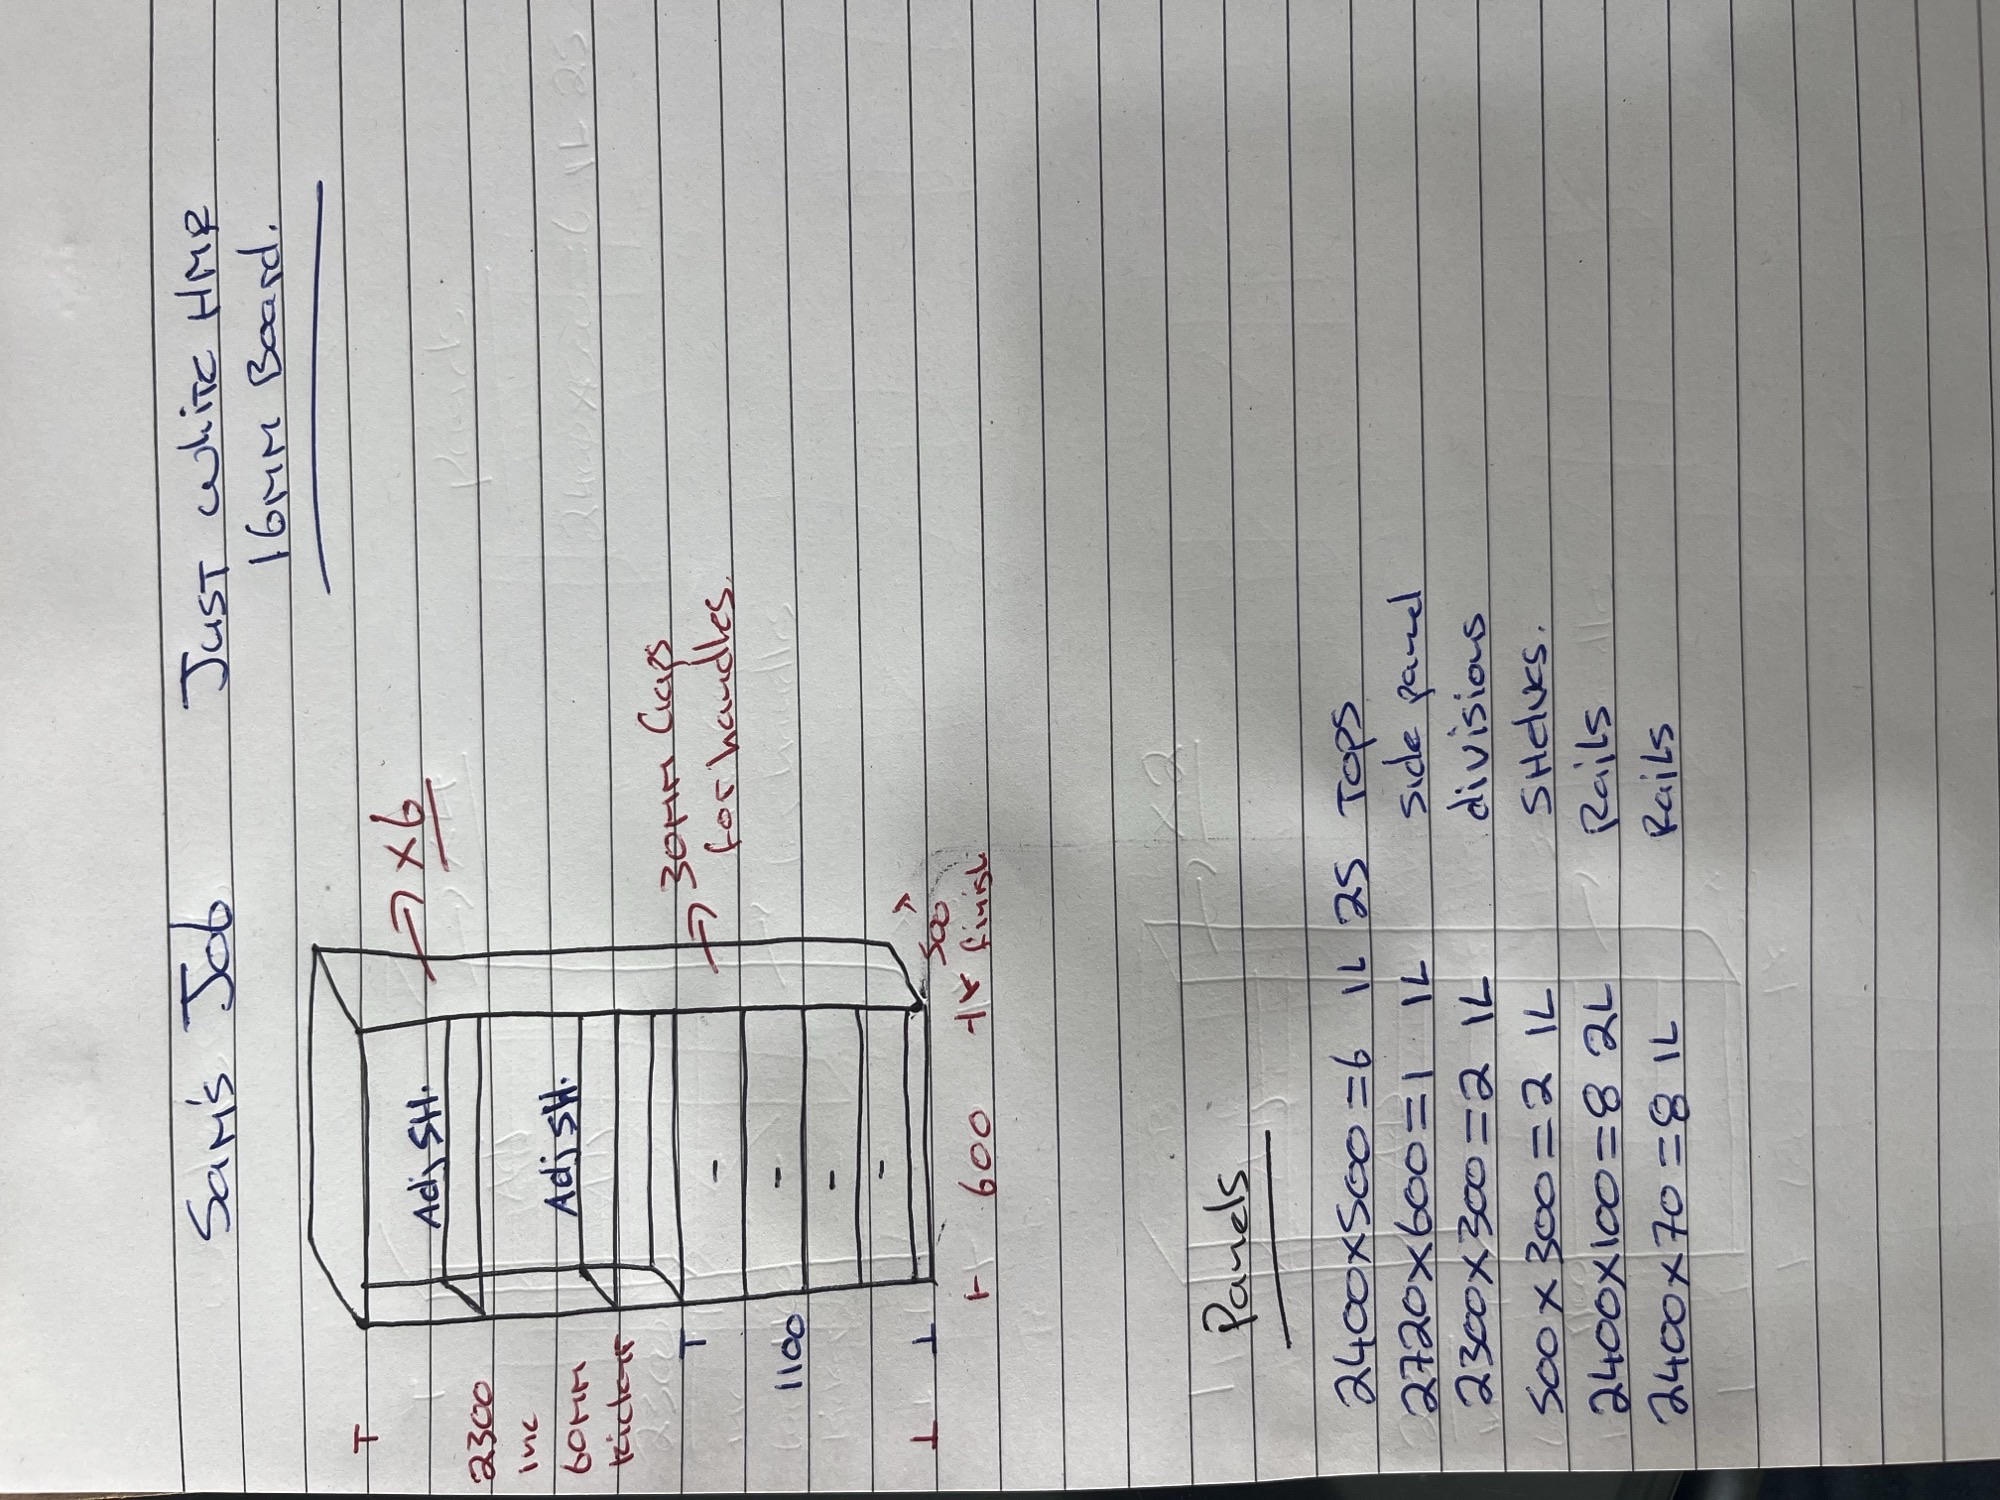 Sam's Job   Just white HMR
16MM Board.
→ x6
Adj SH.
Adj SH.
2300
inc
60MM
kicker
→ 30MM Gaps
for handles.
1100
600
500
finish
Panels
2400x500=6 1L 2S Tops
2720x600=1 1L Side panel
2300x300=2 1L divisions
500x300=2 1L SHelves.
2400x100=8 2L Rails
2400x70=8 1L Rails